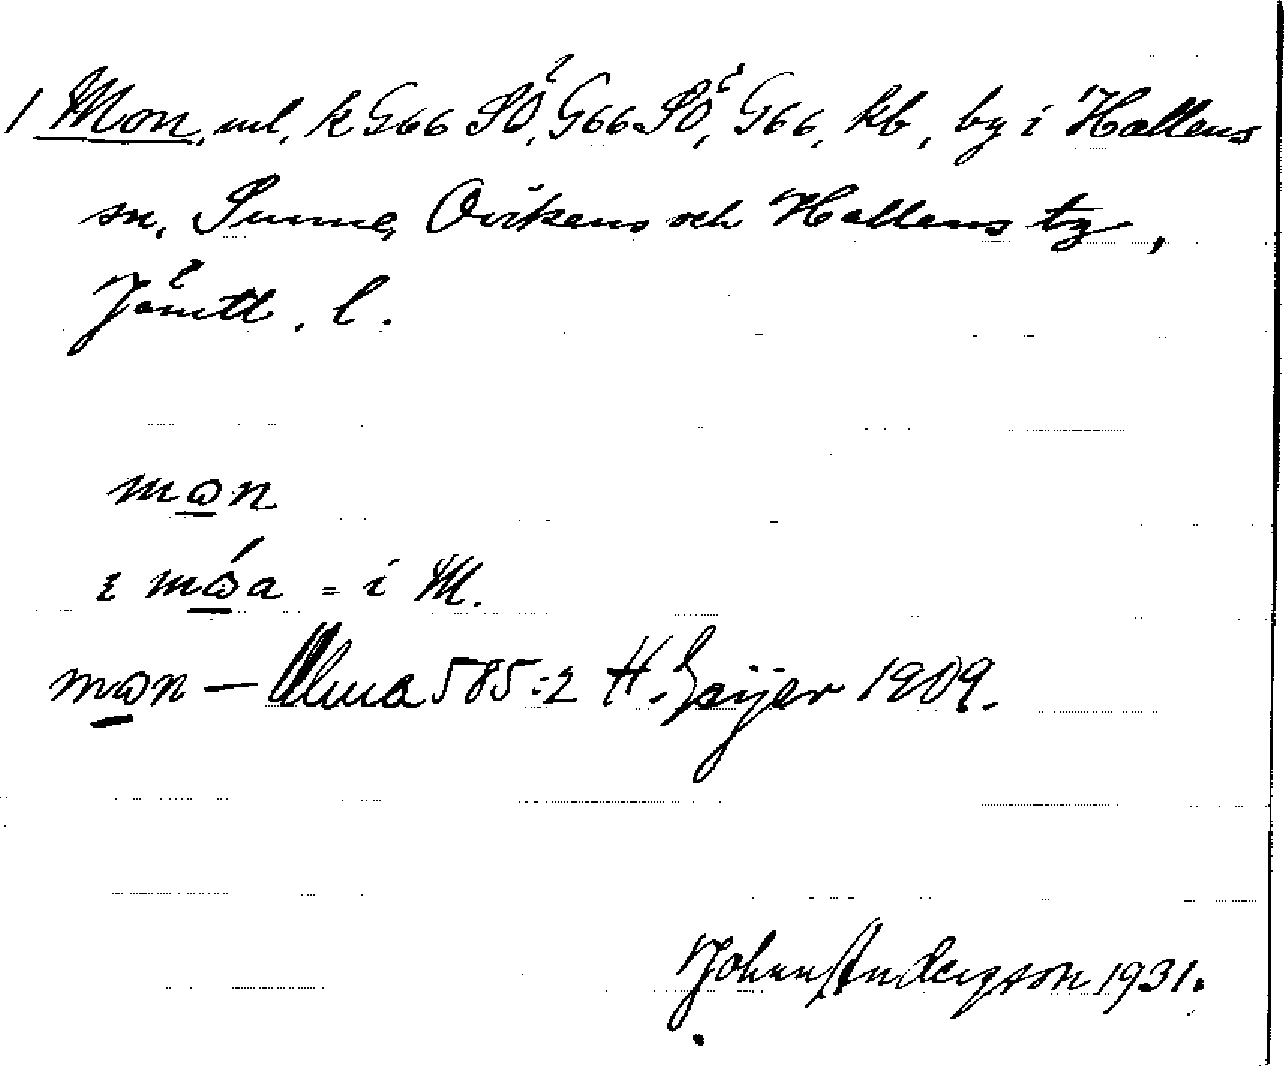 1 Mon, ml, k G66 SÖ, G66 SÖ, G66, kb, by i Hallens
sn, Sunne, Ovikens och Hallens tg,
Jämtl. l.
mɷn
ɩ mɷ́a = i M.
mɷn — Ulma 585:2 H. Geijer 1909.
Johan Anderson 1931.